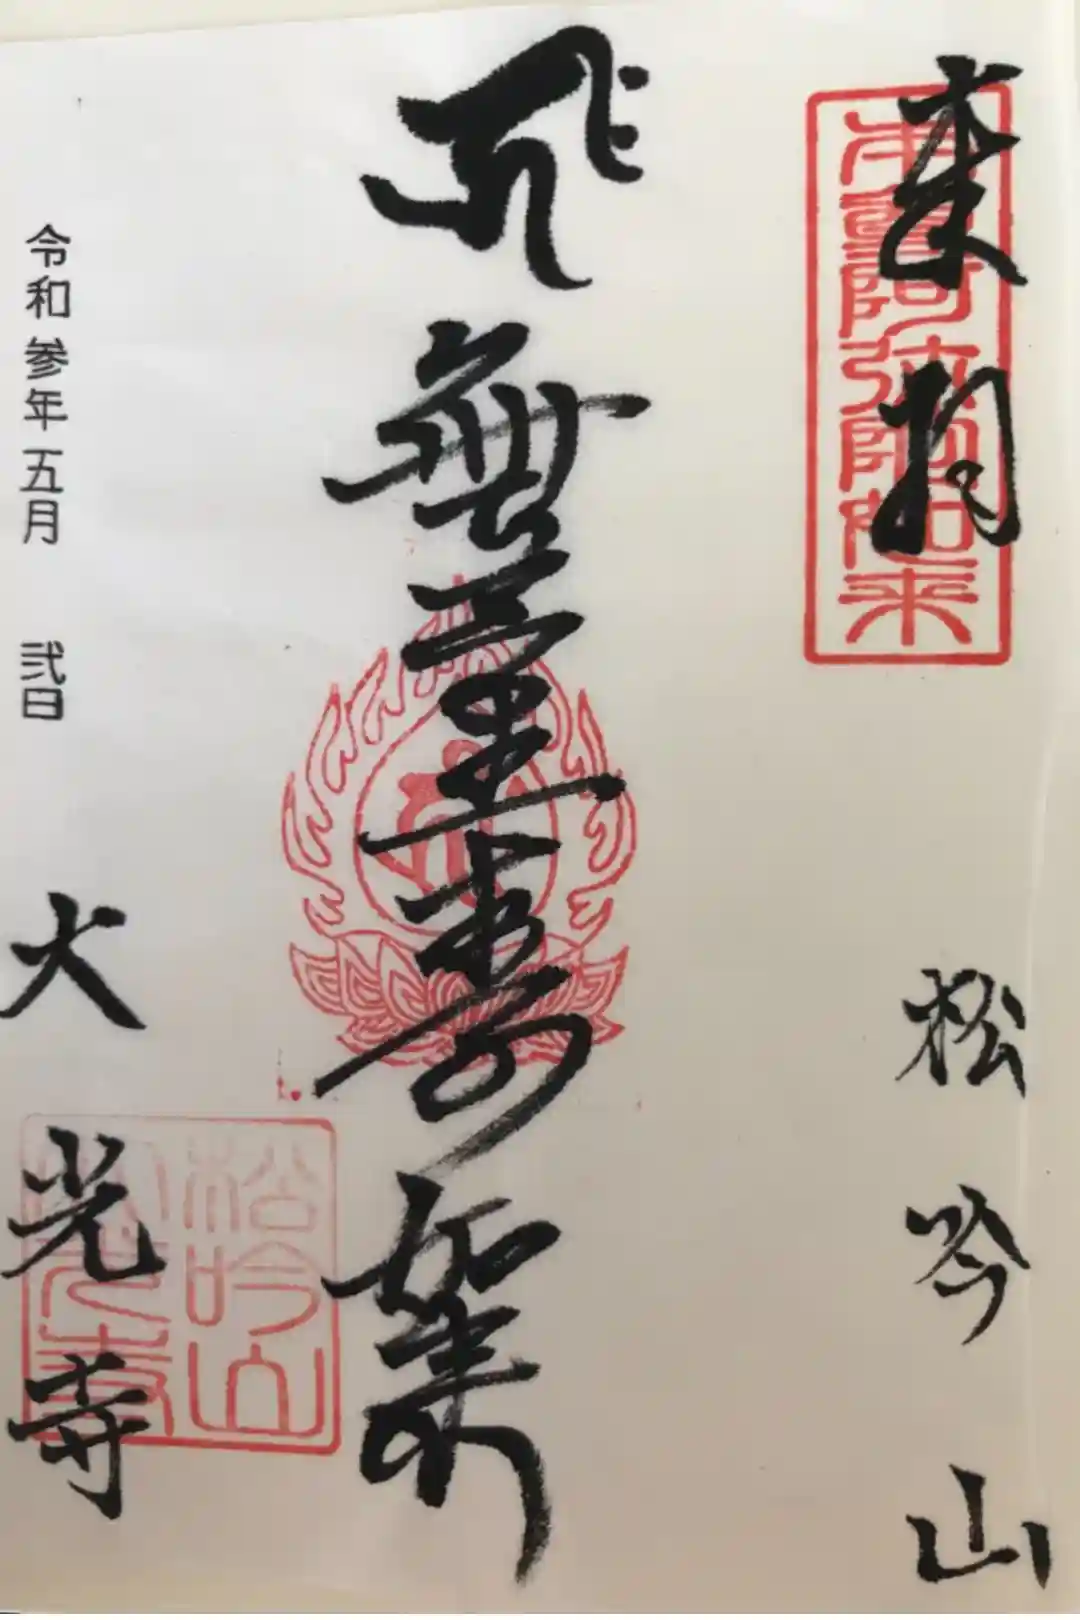 奉拝
本尊阿弥陀如来
松吟山
無量寿如来
令和参年五月 弐日
大光寺
松吟山
大光寺